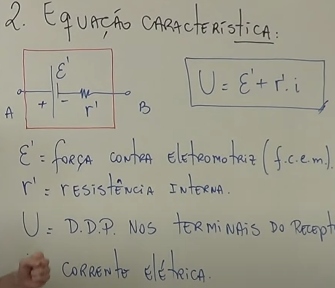 2. EQUAÇÃO CARACTERÍSTICA:
ε'
A + - r' B
U = ε' + r'. i
ε' = FORÇA CONTRA ELETROMOTRIZ (f.c.e.m).
r' = RESISTÊNCIA INTERNA.
U = D.D.P. NOS TERMINAIS DO RECEPT
CORRENTE ELÉTRICA.